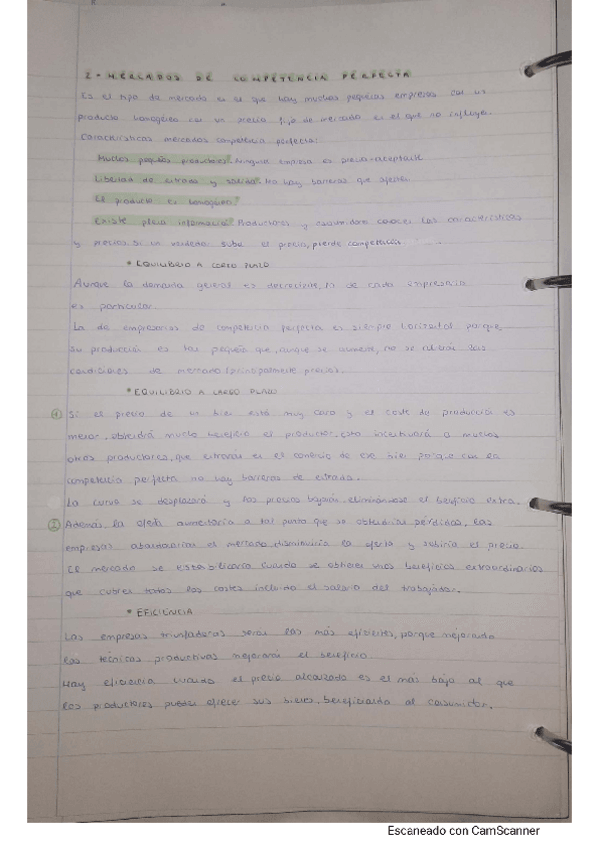 2- MERCADOS DE COMPETENCIA PERFECTA
Es el tipo de mercado en el que hay muchas pequeñas empresas con un
producto homogéneo con un precio fijo de mercado en el que no influyen.
Características mercados competencia perfecta:
Muchos pequeños productores: Ninguna empresa es precio-aceptante
Libertad de entrada y salida: No hay barreras que afecten
El producto es homogéneo:
Existe plena información: Productores y consumidores conocen las características
y precios. Si un vendedor sube el precio, pierde competición.
* EQUILIBRIO A CORTO PLAZO
Aunque la demanda general es decreciente, la de cada empresario
es particular.
La de empresarios de competencia perfecta es siempre horizontal porque
su producción es tan pequeña que, aunque se aumente, no se cubrirán las
condiciones de mercado (principalmente precios).
* EQUILIBRIO A LARGO PLAZO
① Si el precio de un bien está muy caro y el coste de producción es
menor, obtendrá mucho beneficio el productor, esto incentivará a muchos
otros productores, que entrarán en el comercio de ese bien porque con en
competencia perfecta no hay barreras de entrada.
La curva se desplazará y los precios bajarán, eliminándose el beneficio extra.
② Además, la oferta aumentaría a tal punto que se obtendrían pérdidas, las
empresas abandonarían el mercado, disminuiría la oferta y subiría el precio.
El mercado se estabilizará cuando se obtienen unos beneficios extraordinarios
que cubren todos los costes incluido el salario del trabajador.
* EFICIENCIA
Las empresas triunfadoras serán las más eficientes, porque mejorando
las técnicas productivas mejorará el beneficio.
Hay eficiencia cuando el precio alcanzado es el más bajo al que
los productores pueden ofrecer sus bienes, beneficiando al consumidor.
Escaneado con CamScanner